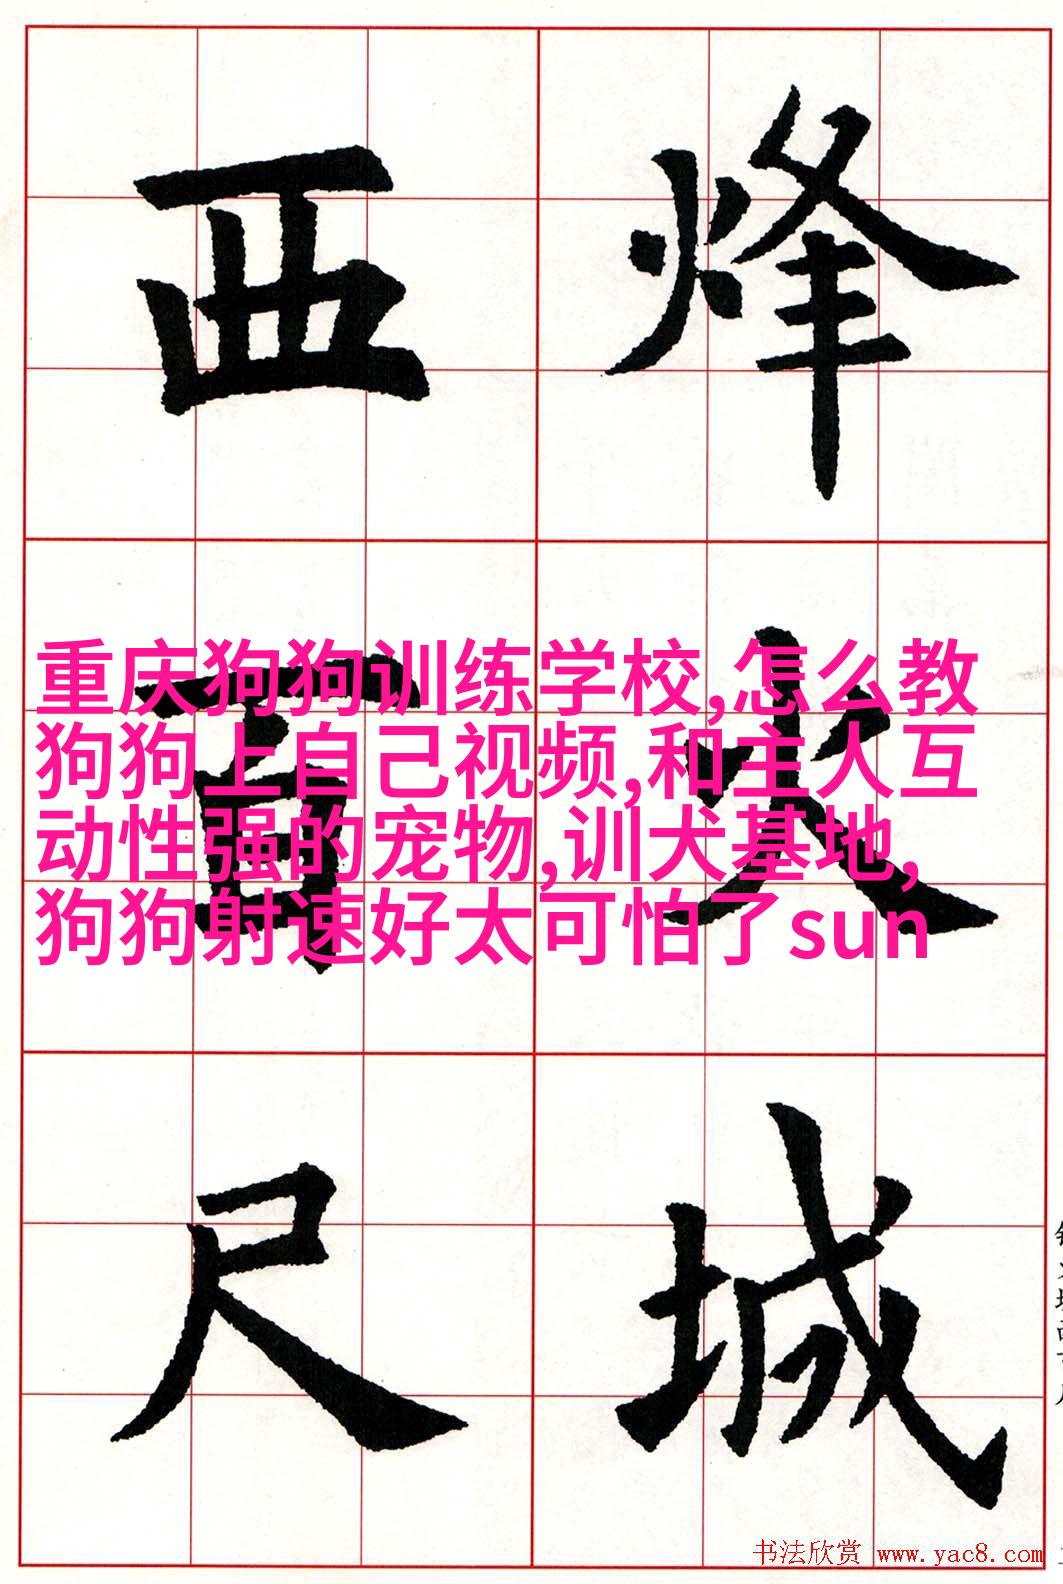 烽火城
西百尺
重庆狗狗训练学校,怎么教
狗狗上自己视频,和主人互
动性强的宠物,训犬基地,
狗狗射速好太可怕了sun
书法欣赏 www.yac8.com